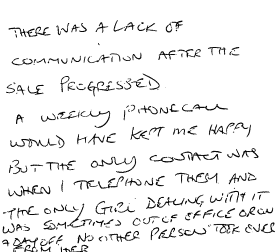 THERE WAS A LACK OF
COMMUNICATION AFTER THE
SALE PROGRESSED
A WEEKLY PHONECALL
WOULD HAVE KEPT ME HAPPY
BUT THE ONLY CONTACT WAS
WHEN I TELEPHONE THEM AND
THE ONLY GIRL DEALING WITH IT
WAS SOMETIMES OUT OF OFFICE OR ON
A DAY OFF NO OTHER PERSON TOOK OVER
FROM HER